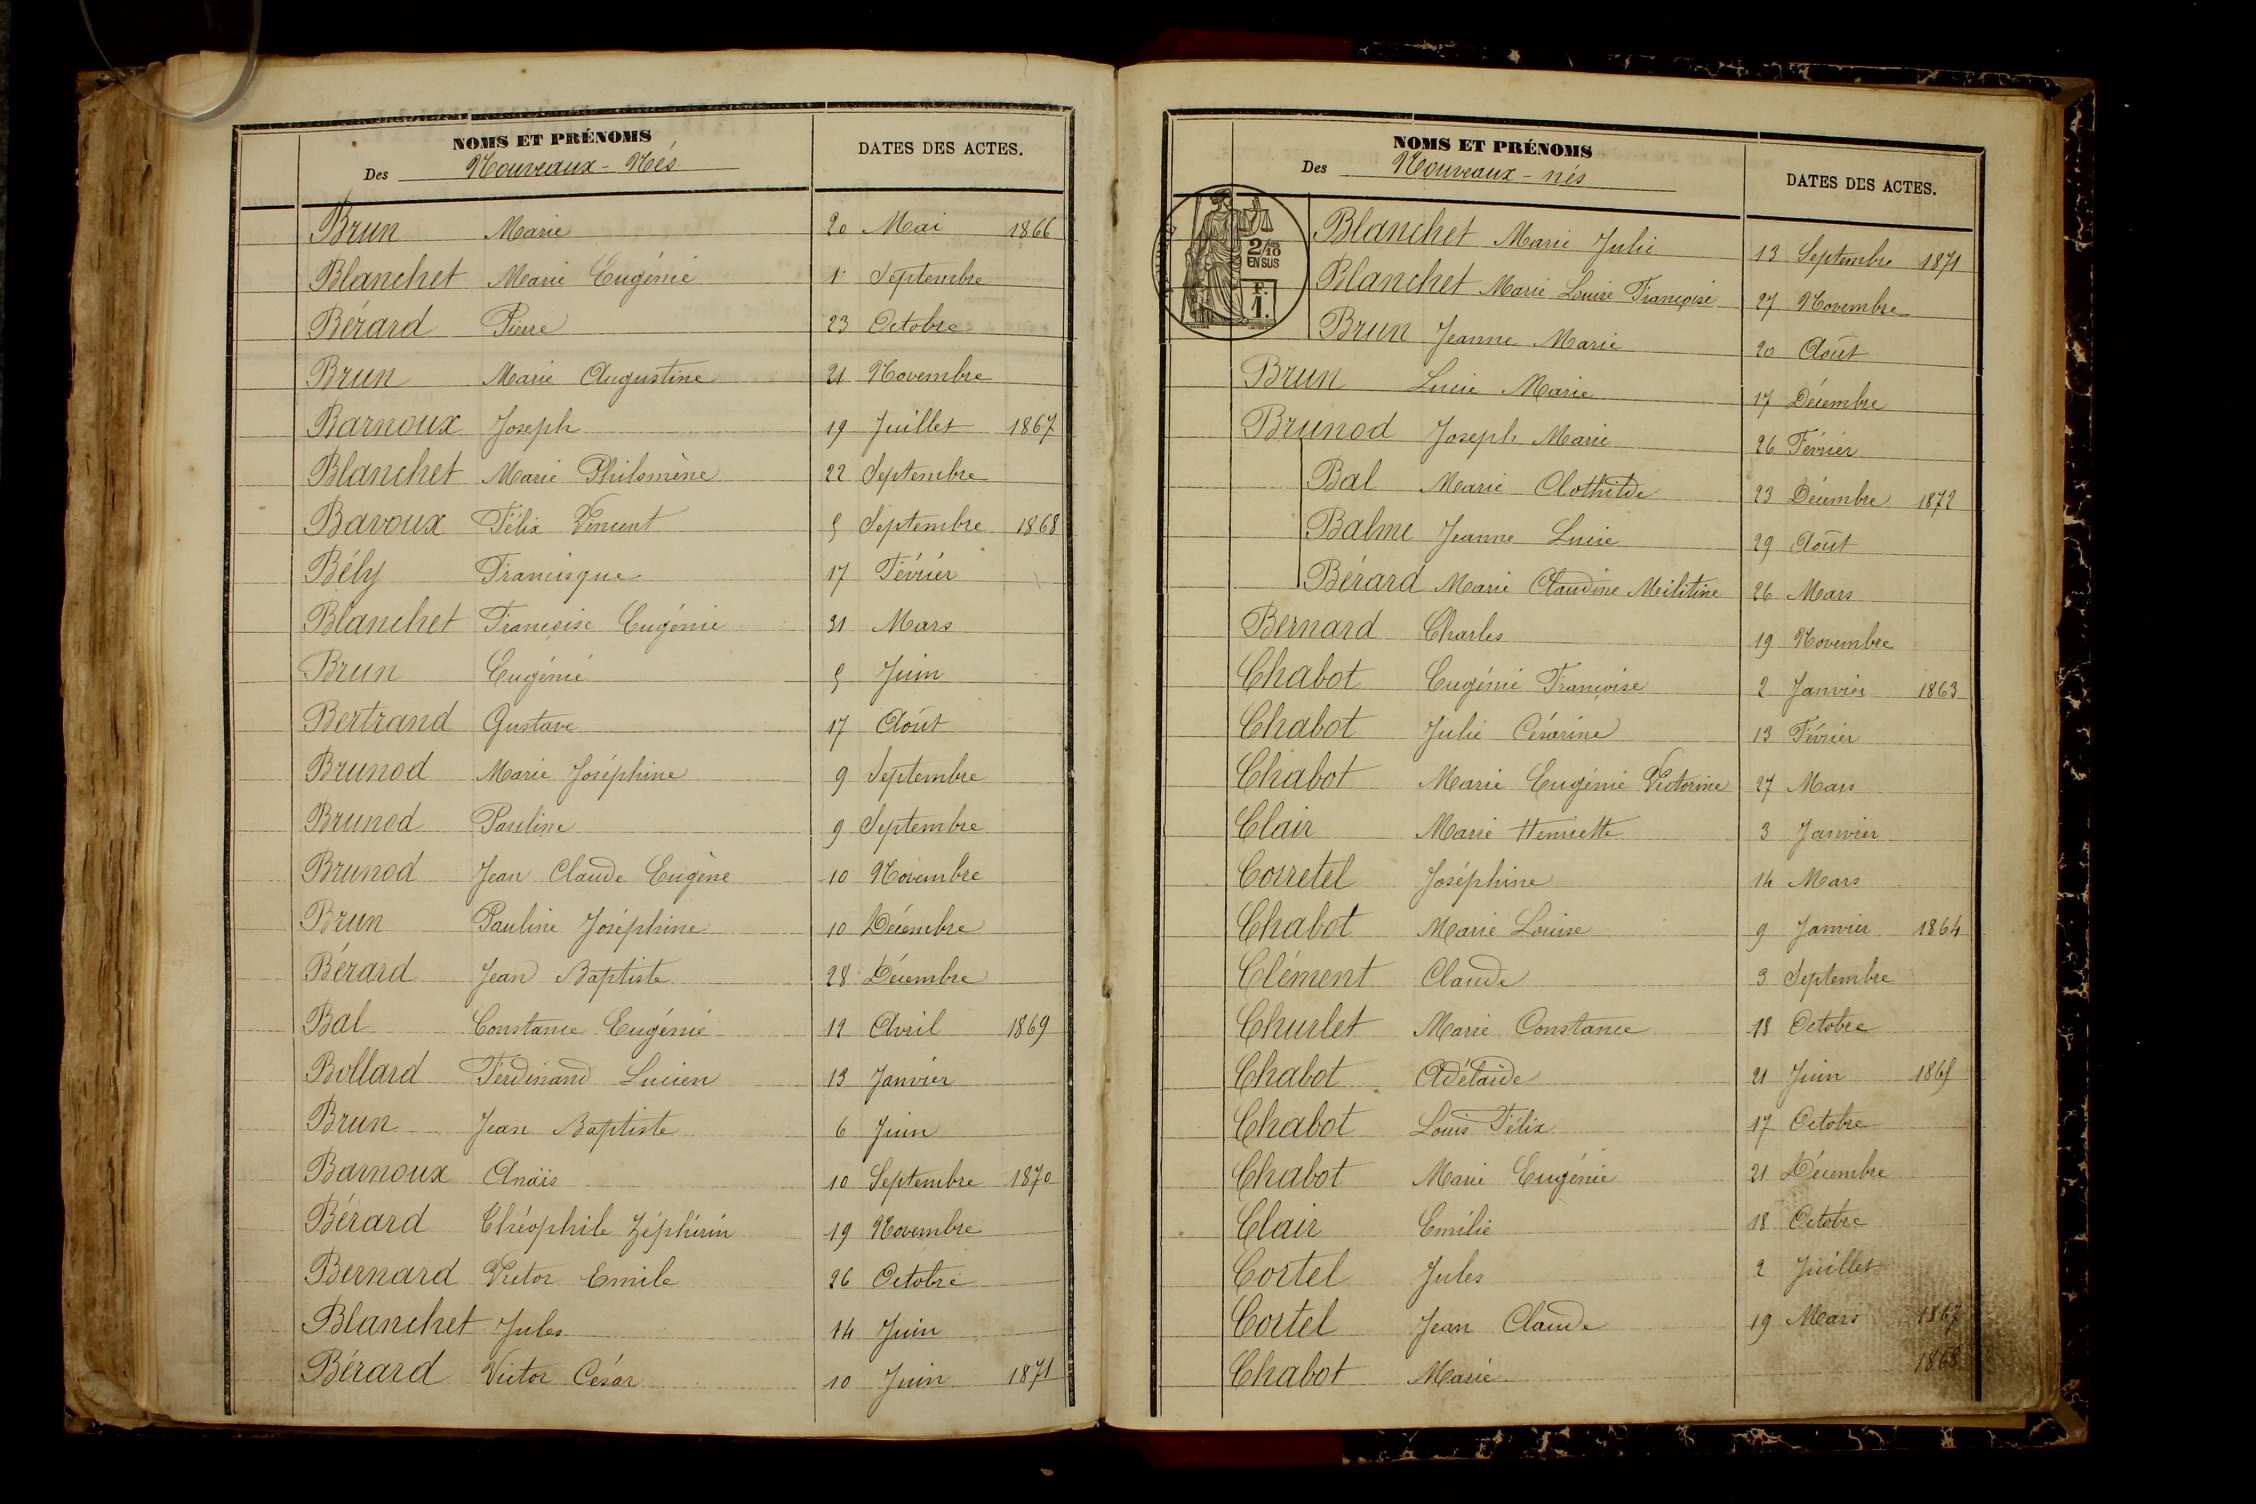 NOMS ET PRÉNOMS
Des Nouveaux-Nés
DATES DES ACTES.
Brun Marie 20 Mai 1866
Blanchet Marie Eugénie 1er Septembre
Bérard Pierre 23 Octobre
Brun Marie Augustine 21 Novembre
Barnoux Joseph 19 Juillet 1867
Blanchet Marie Philomène 22 Septembre
Bavoux Félix Vincent 5 Septembre 1868
Bély Francisque 17 Février
Blanchet Françoise Eugénie 31 Mars
Brun Eugénie 5 Juin
Bertrand Gustave 17 Août
Brunod Marie Joséphine 9 Septembre
Brunod Pauline 9 Septembre
Brunod Jean Claude Eugène 10 Novembre
Brun Pauline Joséphine 10 Décembre
Bérard Jean Baptiste 28 Décembre
Bal Constance Eugénie 12 Avril 1869
Bollard Ferdinand Lucien 13 Janvier
Brun Jean Baptiste 6 Juin
Barnoux Anaïs 10 Septembre 1870
Bérard Théophile Zéphirin 19 Novembre
Bernard Victor Emile 26 Octobre
Blanchet Jules 14 Juin
Bérard Victor César 10 Juin 1871
NOMS ET PRÉNOMS
Des Nouveaux-nés
DATES DES ACTES.
2/10
EN SUS
F.
1.
Blanchet Marie Julie 13 Septembre 1871
Blanchet Marie Louise Françoise 27 Novembre
Brun Jeanne Marie 20 Août
Brun Lucie Marie 17 Décembre
Brunod Joseph Marie 26 Février
Bal Marie Clothilde 23 Décembre 1872
Balme Jeanne Lucie 29 Août
Bérard Marie Claudine Melitine 26 Mars
Bernard Charles 19 Novembre
Chabot Eugénie Françoise 2 Janvier 1863
Chabot Julie Césarine 13 Février
Chabot Marie Eugénie Victorine 27 Mars
Clair Marie Henriette 3 Janvier
Corretel Joséphine 14 Mars
Chabot Marie Louise 9 Janvier 1864
Clément Claude 3 Septembre
Churlet Marie Constance 18 Octobre
Chabot Adélaïde 21 Juin 1865
Chabot Louis Félix 17 Octobre
Chabot Marie Eugénie 21 Décembre
Clair Emilie 18 Octobre
Cortel Jules 2 Juillet
Cortel Jean Claude 19 Mars 1867
Chabot Marie 1868